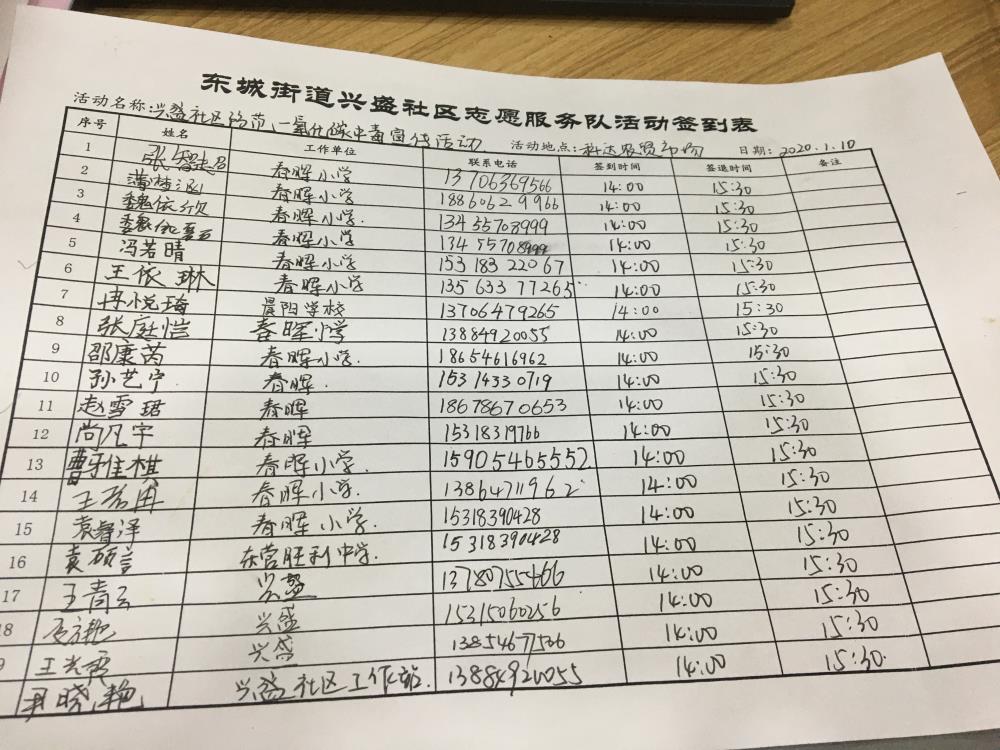 东城街道兴盛社区志愿服务队活动签到表
活动名称:兴盛社区预防一氧化碳中毒宣传活动 活动地点:科达农贸市场 日期:2020.1.10
序号 姓名 工作单位 联系电话 签到时间 签退时间 备注
1 张智超 春晖小学 13706369566 14:00 15:30
2 春晖小学 18860629966 14:00 15:30
3 魏依欣 春晖小学. 13455708999 14:00 15:30
4 春晖小学 13455708999 14:00 15:30
5 冯若晴 春晖小学 15318322067 14:00 15:30
6 王依琳 春晖小学 13563377265 14:00 15:30
7 冉悦琦 晨阳学校 13706479265 14:00 15:30
8 张庭恺 春晖小学 13884920055 14:00 15:30
9 邵康芮 春晖小学. 18654616962 14:00 15:30
10 孙艺宁 春晖. 15314330719 14:00 15:30
11 赵雪珺 春晖 18678670653 14:00 15:30
12 尚凡宇 春晖 15318319766 14:00 15:30
13 曹雅棋 春晖小学. 15905465552 14:00 15:30
14 王 冉 春晖小学. 13864711962 14:00 15:30
15 袁睿泽 春晖小学. 15318390428 14:00 15:30
16 袁硕 东营胜利中学. 15318390428 14:00 15:30
17 王青云 兴盛 13780755466 14:00 15:30
18 兴盛 15315060256 14:00 15:30
9 王 霞 兴盛 13854677506 14:00 15:30
尹晓艳 兴盛社区工作站. 13884920055 14:00 15:30